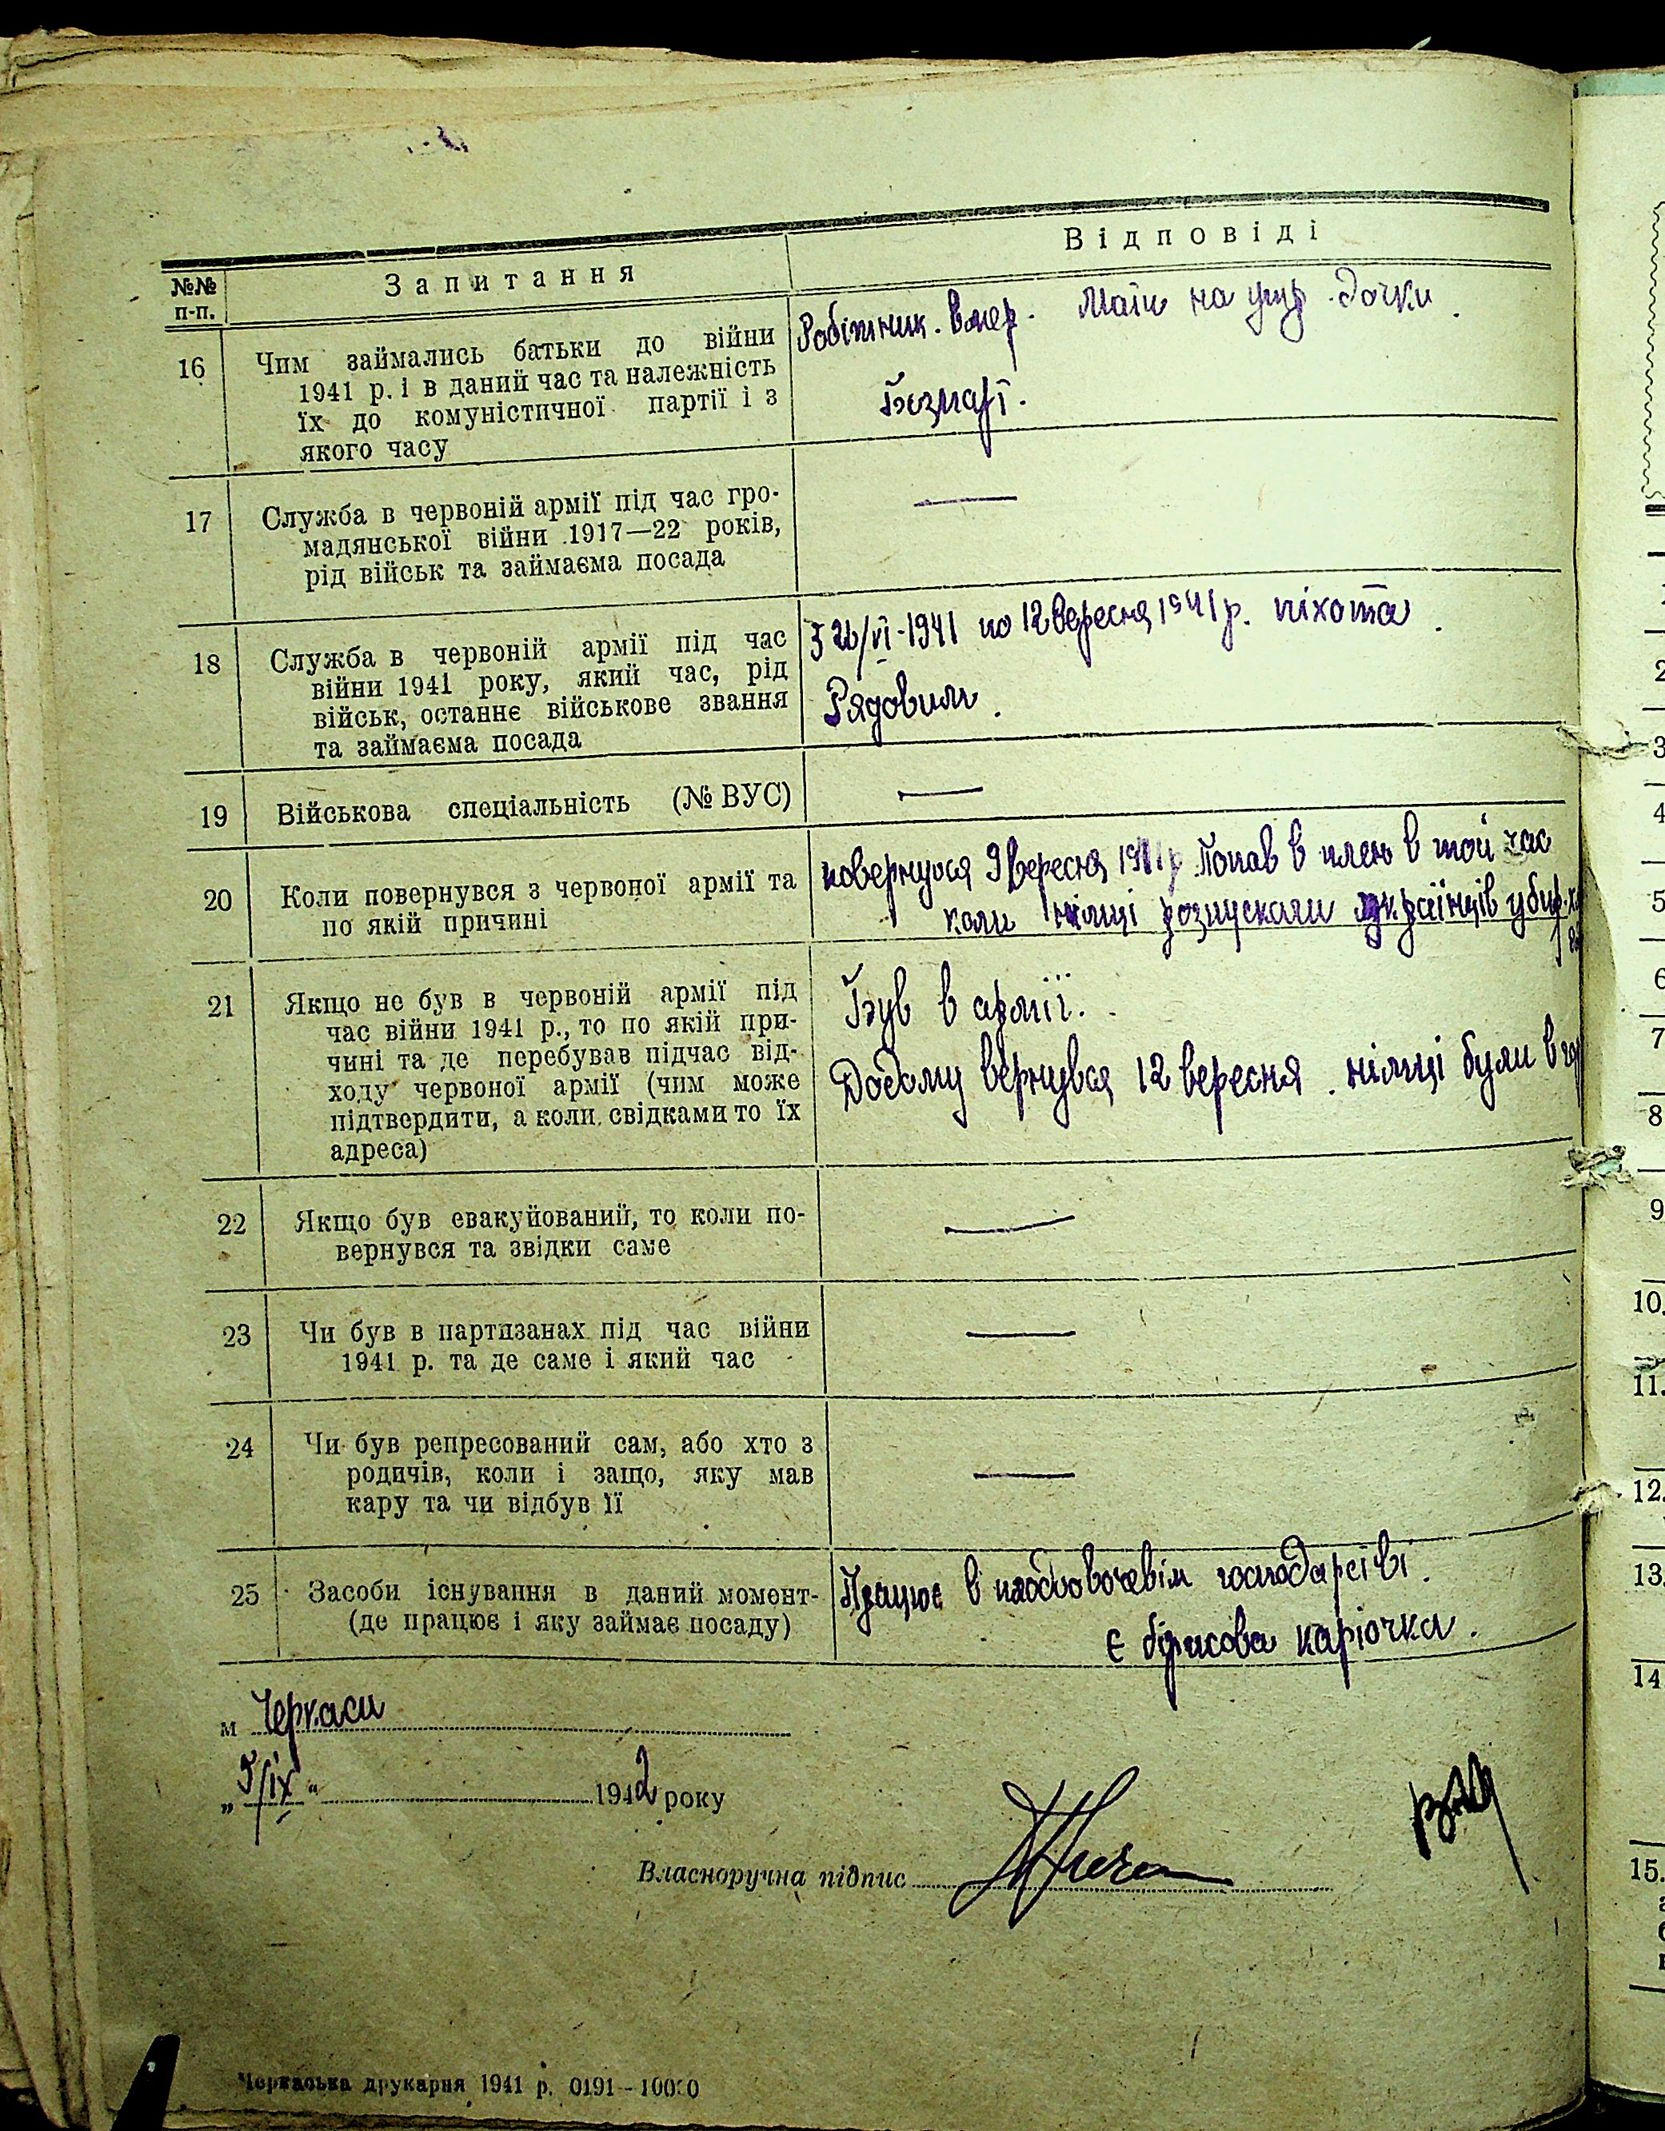 №№ п-п. Запитання Відповіді
16 Чим займались батьки до війни
1941 р. і в даний час та належність
їх до комуністичної партії і з
якого часу
Робітник. вмер. Мати на утр. дочки.
Безпарт.
17 Служба в червоній армії під час гро-
мадянської війни 1917—22 років,
рід військ та займаєма посада
—
18 Служба в червоній армії під час
війни 1941 року, який час, рід
військ, останнє військове звання
та займаєма посада
З 26/VI-1941 по 12 вересня 1941 р. піхота.
Рядовим.
19 Військова спеціальність (№ ВУС)
—
20 Коли повернувся з червоної армії та
по якій причині
повернувся 9 вересня 1941 р. Попав в плен в той час
коли німці розпускали українців
21 Якщо не був в червоній армії під
час війни 1941 р., то по якій при-
чині та де перебував підчас від-
ходу червоної армії (чим може
підтвердити, а коли свідками то їх
адреса)
Був в армії.
Додому вернувся 12 вересня. німці були в
22 Якщо був евакуйований, то коли по-
вернувся та звідки саме
—
23 Чи був в партизанах під час війни
1941 р. та де саме і який час
—
24 Чи був репресований сам, або хто з
родичів, коли і защо, яку мав
кару та чи відбув її
—
25 Засоби існування в даний момент-
(де працює і яку займає посаду)
Працює в плодоовочевім господарстві.
є біржова карточка.
м Черкаси
„5/IX" 1942 року
Власноручна підпис
Черкаська друкарня 1941 р. 0191-10000
3
4
5
6
7
8
9
10.
11.
12.
13.
14
15.